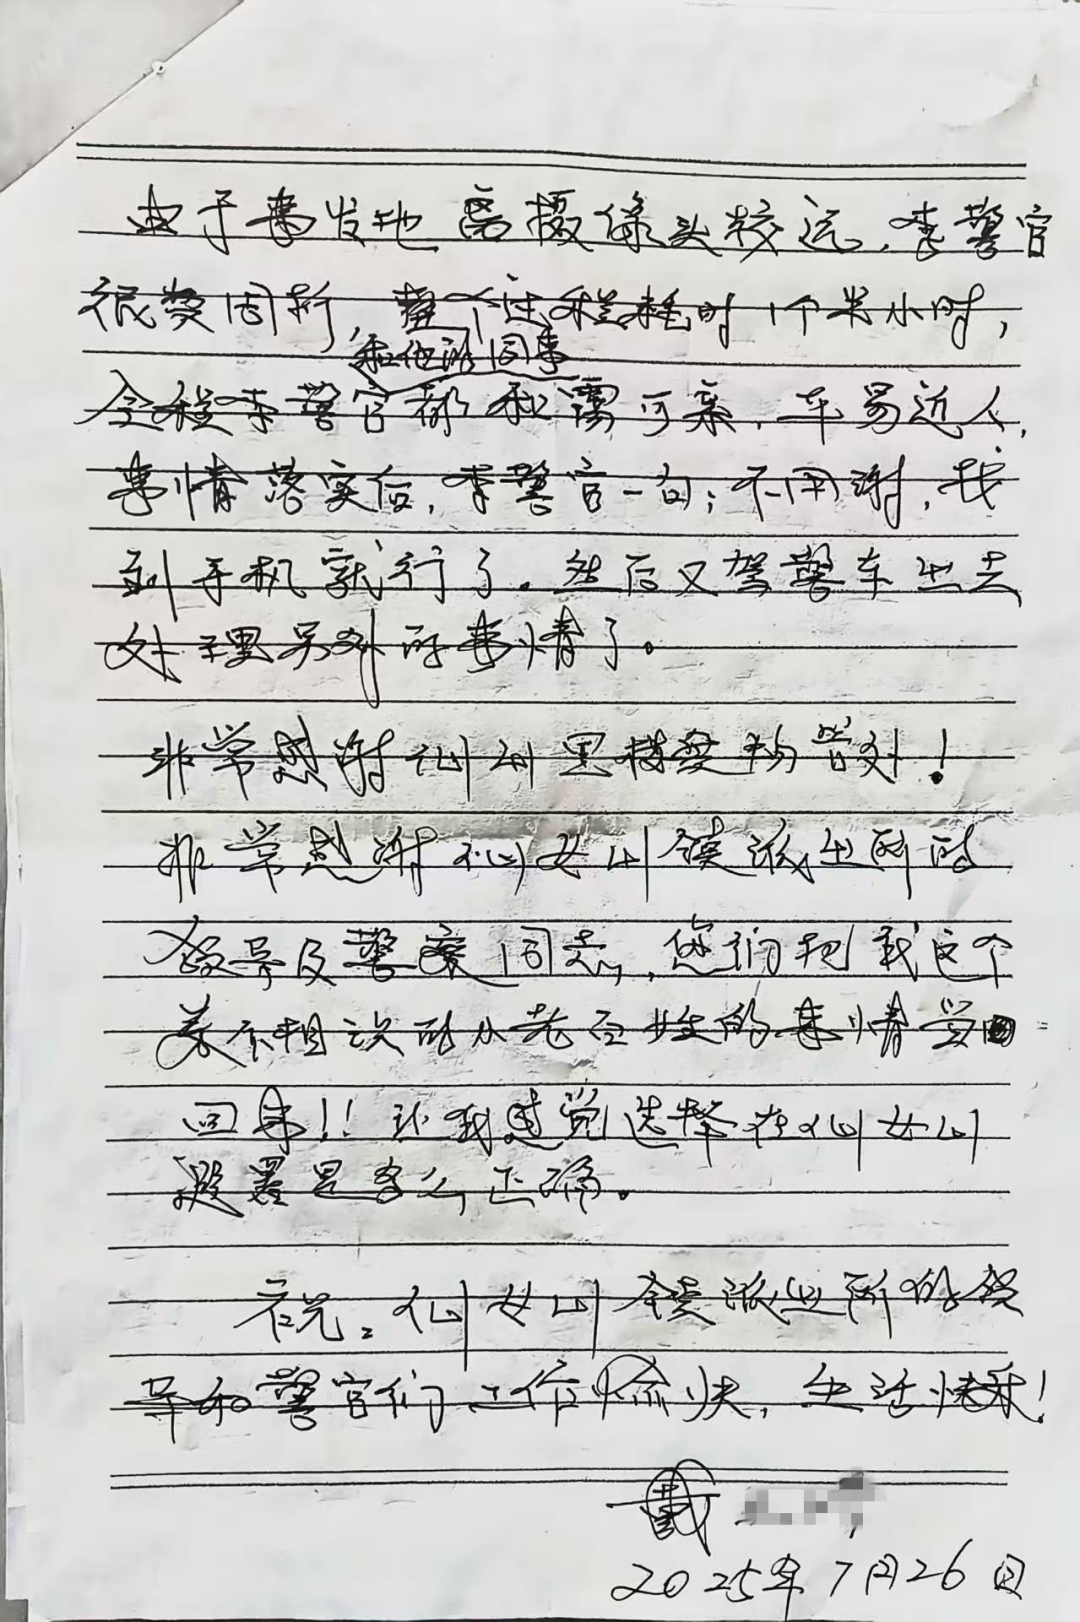 由于事发地离摄像头较远，李警官
很费周折，整个过程耗时1个半小时，
和他的同事
全程李警官都和蔼可亲，平易近人，
事情落实后，李警官一句：不用谢，找
到手机就行了。然后又驾警车出去
处理另外的事情了。
非常感谢仙
非常感谢仙女山镇派出所的
领导及警察同志，您们把我这个
素不相识的小老百姓的事情当
回事!！让我感觉选择在仙女山
避暑是多么正确。
祝：仙女山镇派出所的领
导和警官们工作愉快，生活快乐！
戴
2025年7月26日